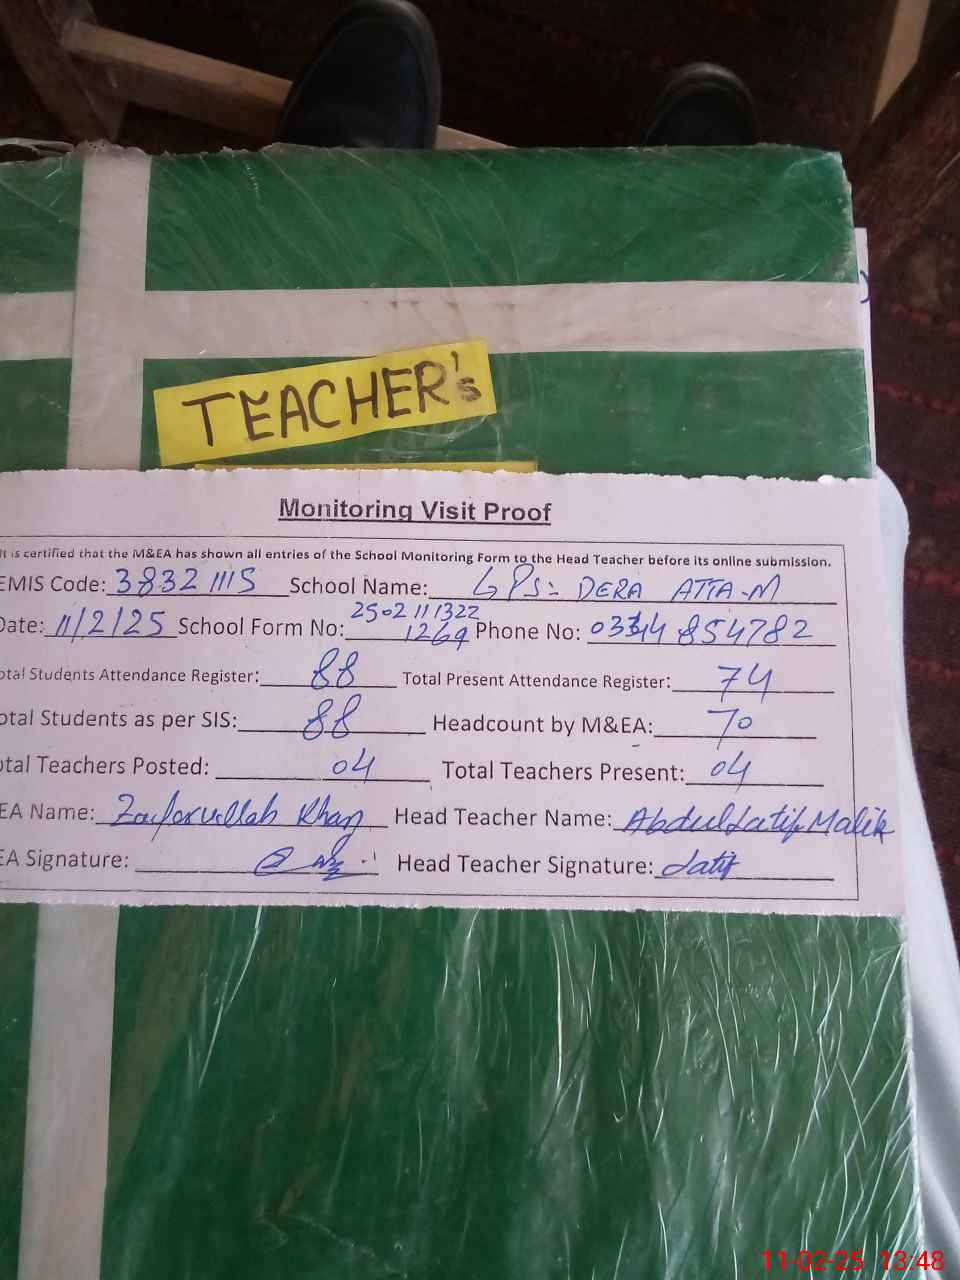 TEACHER's
Monitoring Visit Proof
It is certified that the M&EA has shown all entries of the School Monitoring Form to the Head Teacher before its online submission.
EMIS Code: 38321115 School Name: GPS: DERA ATTA-M
Date: 11/2/25 School Form No: 2502111322
1269 Phone No:
otal Students Attendance Register: 88 Total Present Attendance Register: 74
otal Students as per SIS: 88 Headcount by M&EA: 70
otal Teachers Posted: 04 Total Teachers Present: 04
EA Name: Zafarullah Khan Head Teacher Name: Abdul Latif Malik
EA Signature: Head Teacher Signature: Latif
11-02-25 13:48